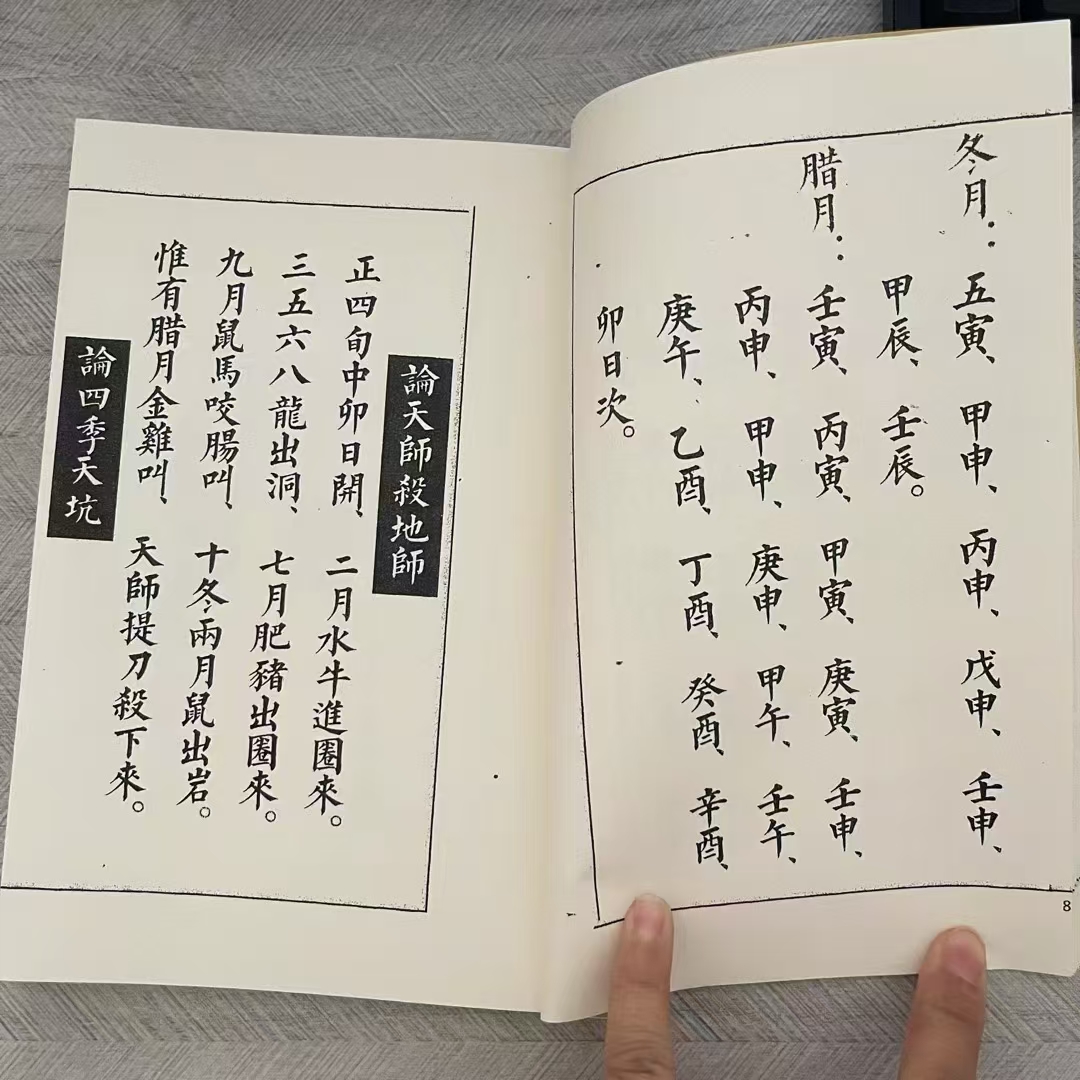 冬月：五寅、甲申、丙申、戊申、壬申、
甲辰、壬辰。
腊月：壬寅、丙寅、甲寅、庚寅、壬申、
丙申、甲申、庚申、甲午、壬午、
庚午、乙酉、丁酉、癸酉、辛酉、
卯日次。
8
論天師殺地師
正四旬中卯日開、二月水牛進圈來。
三五六八龍出洞、七月肥豬出圈來。
九月鼠馬咬腸叫、十冬兩月鼠出岩。
惟有腊月金雞叫、天師提刀殺下來。
論四季天坑